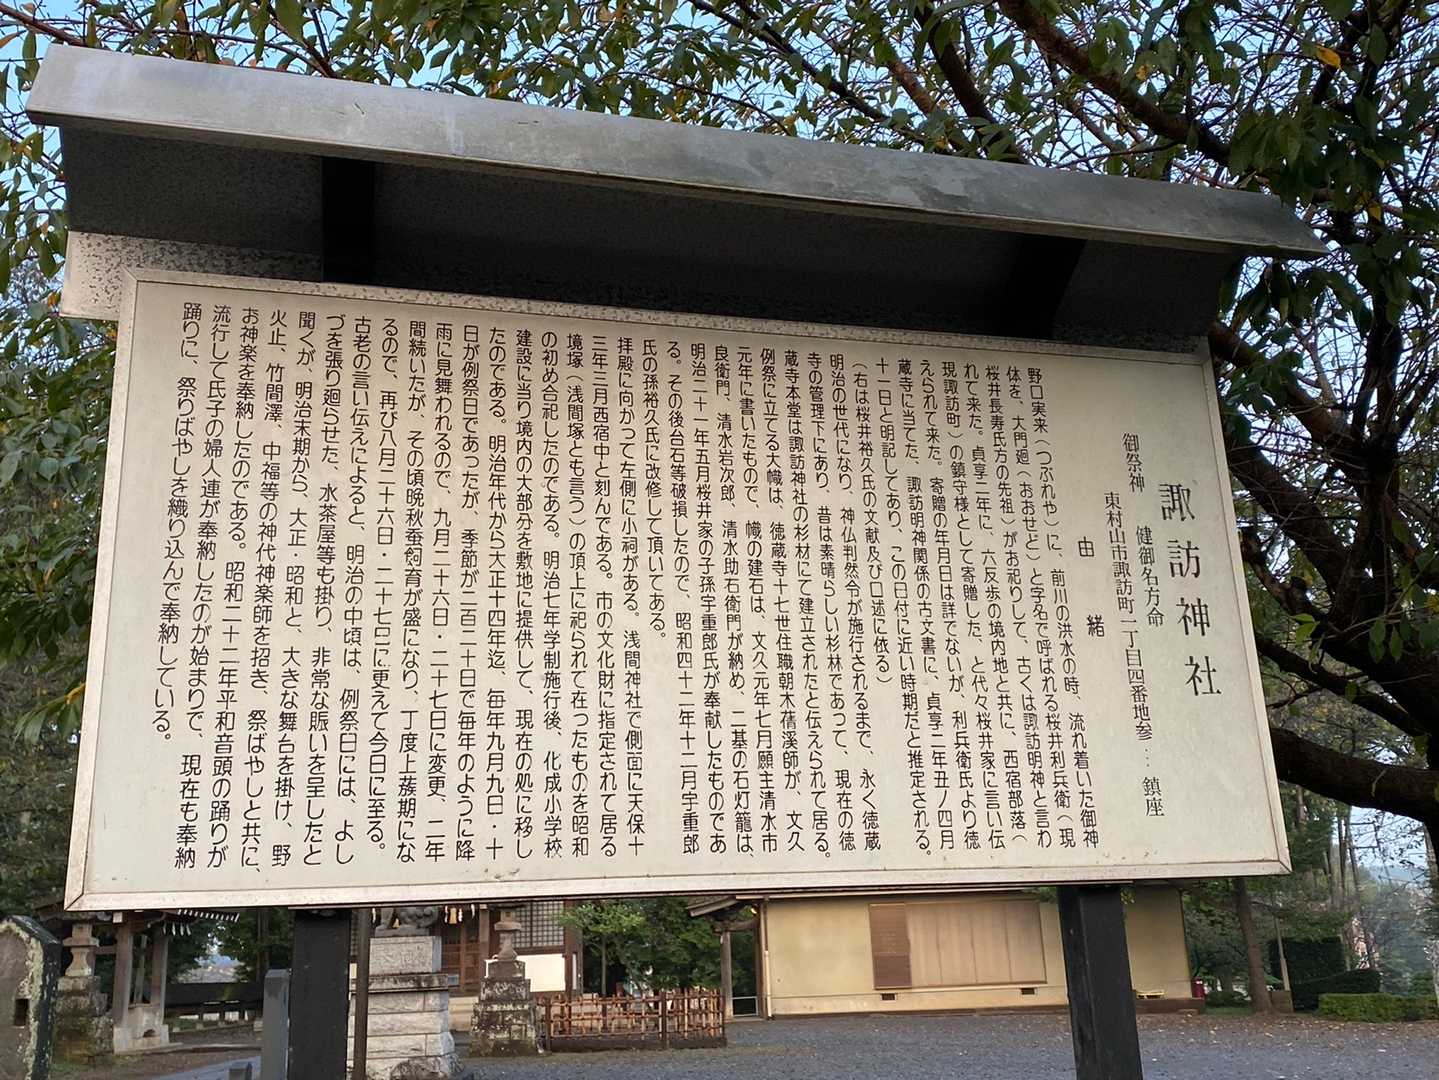 諏訪神社
御祭神　健御名方命
東村山市諏訪町一丁目四番地参…鎮座
由緒
野口実来（つぶれや）に、前川の洪水の時、流れ着いた御神
体を、大門廻（おおせど）と字名で呼ばれる桜井利兵衛（現
桜井長寿氏方の先祖）がお祀りして、古くは諏訪明神と言わ
れて来た。貞享二年に、六反歩の境内地と共に、西宿部落（
現諏訪町）の鎮守様として寄贈した、と代々桜井家に言い伝
えられて来た。寄贈の年月日は詳でないが、利兵衛氏より徳
蔵寺に当てた、諏訪明神関係の古文書に、貞享二年丑ノ四月
十一日と明記してあり、この日付に近い時期だと推定される。
（右は桜井裕久氏の文献及び口述に依る）
明治の世代になり、神仏判然令が施行されるまで、永く徳蔵
寺の管理下にあり、昔は素晴らしい杉林であって、現在の徳
蔵寺本堂は諏訪神社の杉材にて建立されたと伝えられて居る。
例祭に立てる大幟は、徳蔵寺十七世住職朝木蒨溪師が、文久
元年に書いたもので、幟の建石は、文久元年七月願主清水市
良衛門、清水岩次郎、清水助右衛門が納め、二基の石灯籠は、
明治二十一年五月桜井家の子孫宇重郎氏が奉献したものであ
る。その後台石等破損したので、昭和四十二年十二月宇重郎
氏の孫裕久氏に改修して頂いてある。
拝殿に向かつて左側に小祠がある。浅間神社で側面に天保十
三年三月西宿中と刻んである。市の文化財に指定されて居る
境塚（浅間塚とも言う）の頂上に祀られて在つたものを昭和
の初め合祀したのである。明治七年学制施行後、化成小学校
建設に当り境内の大部分を敷地に提供して、現在の処に移し
たのである。明治年代から大正十四年迄、毎年九月九日・十
日が例祭日であったが、季節が二百二十日で毎年のように降
雨に見舞われるので、九月二十六日・二十七日に変更、二年
間続いたが、その頃晩秋蚕飼育が盛になり、丁度上蔟期にな
るので、再び八月二十六日・二十七日に更えて今日に至る。
古老の言い伝えによると、明治の中頃は、例祭日には、よし
づを張り廻らせた、水茶屋等も掛り、非常な賑いを呈したと
聞くが、明治末期から、大正・昭和と、大きな舞台を掛け、野
火止、竹間澤、中福等の神代神楽師を招き、祭ばやしと共に、
お神楽を奉納したのである。昭和二十二年平和音頭の踊りが
流行して氏子の婦人連が奉納したのが始まりで、現在も奉納
踊りに、祭りばやしを織り込んで奉納している。